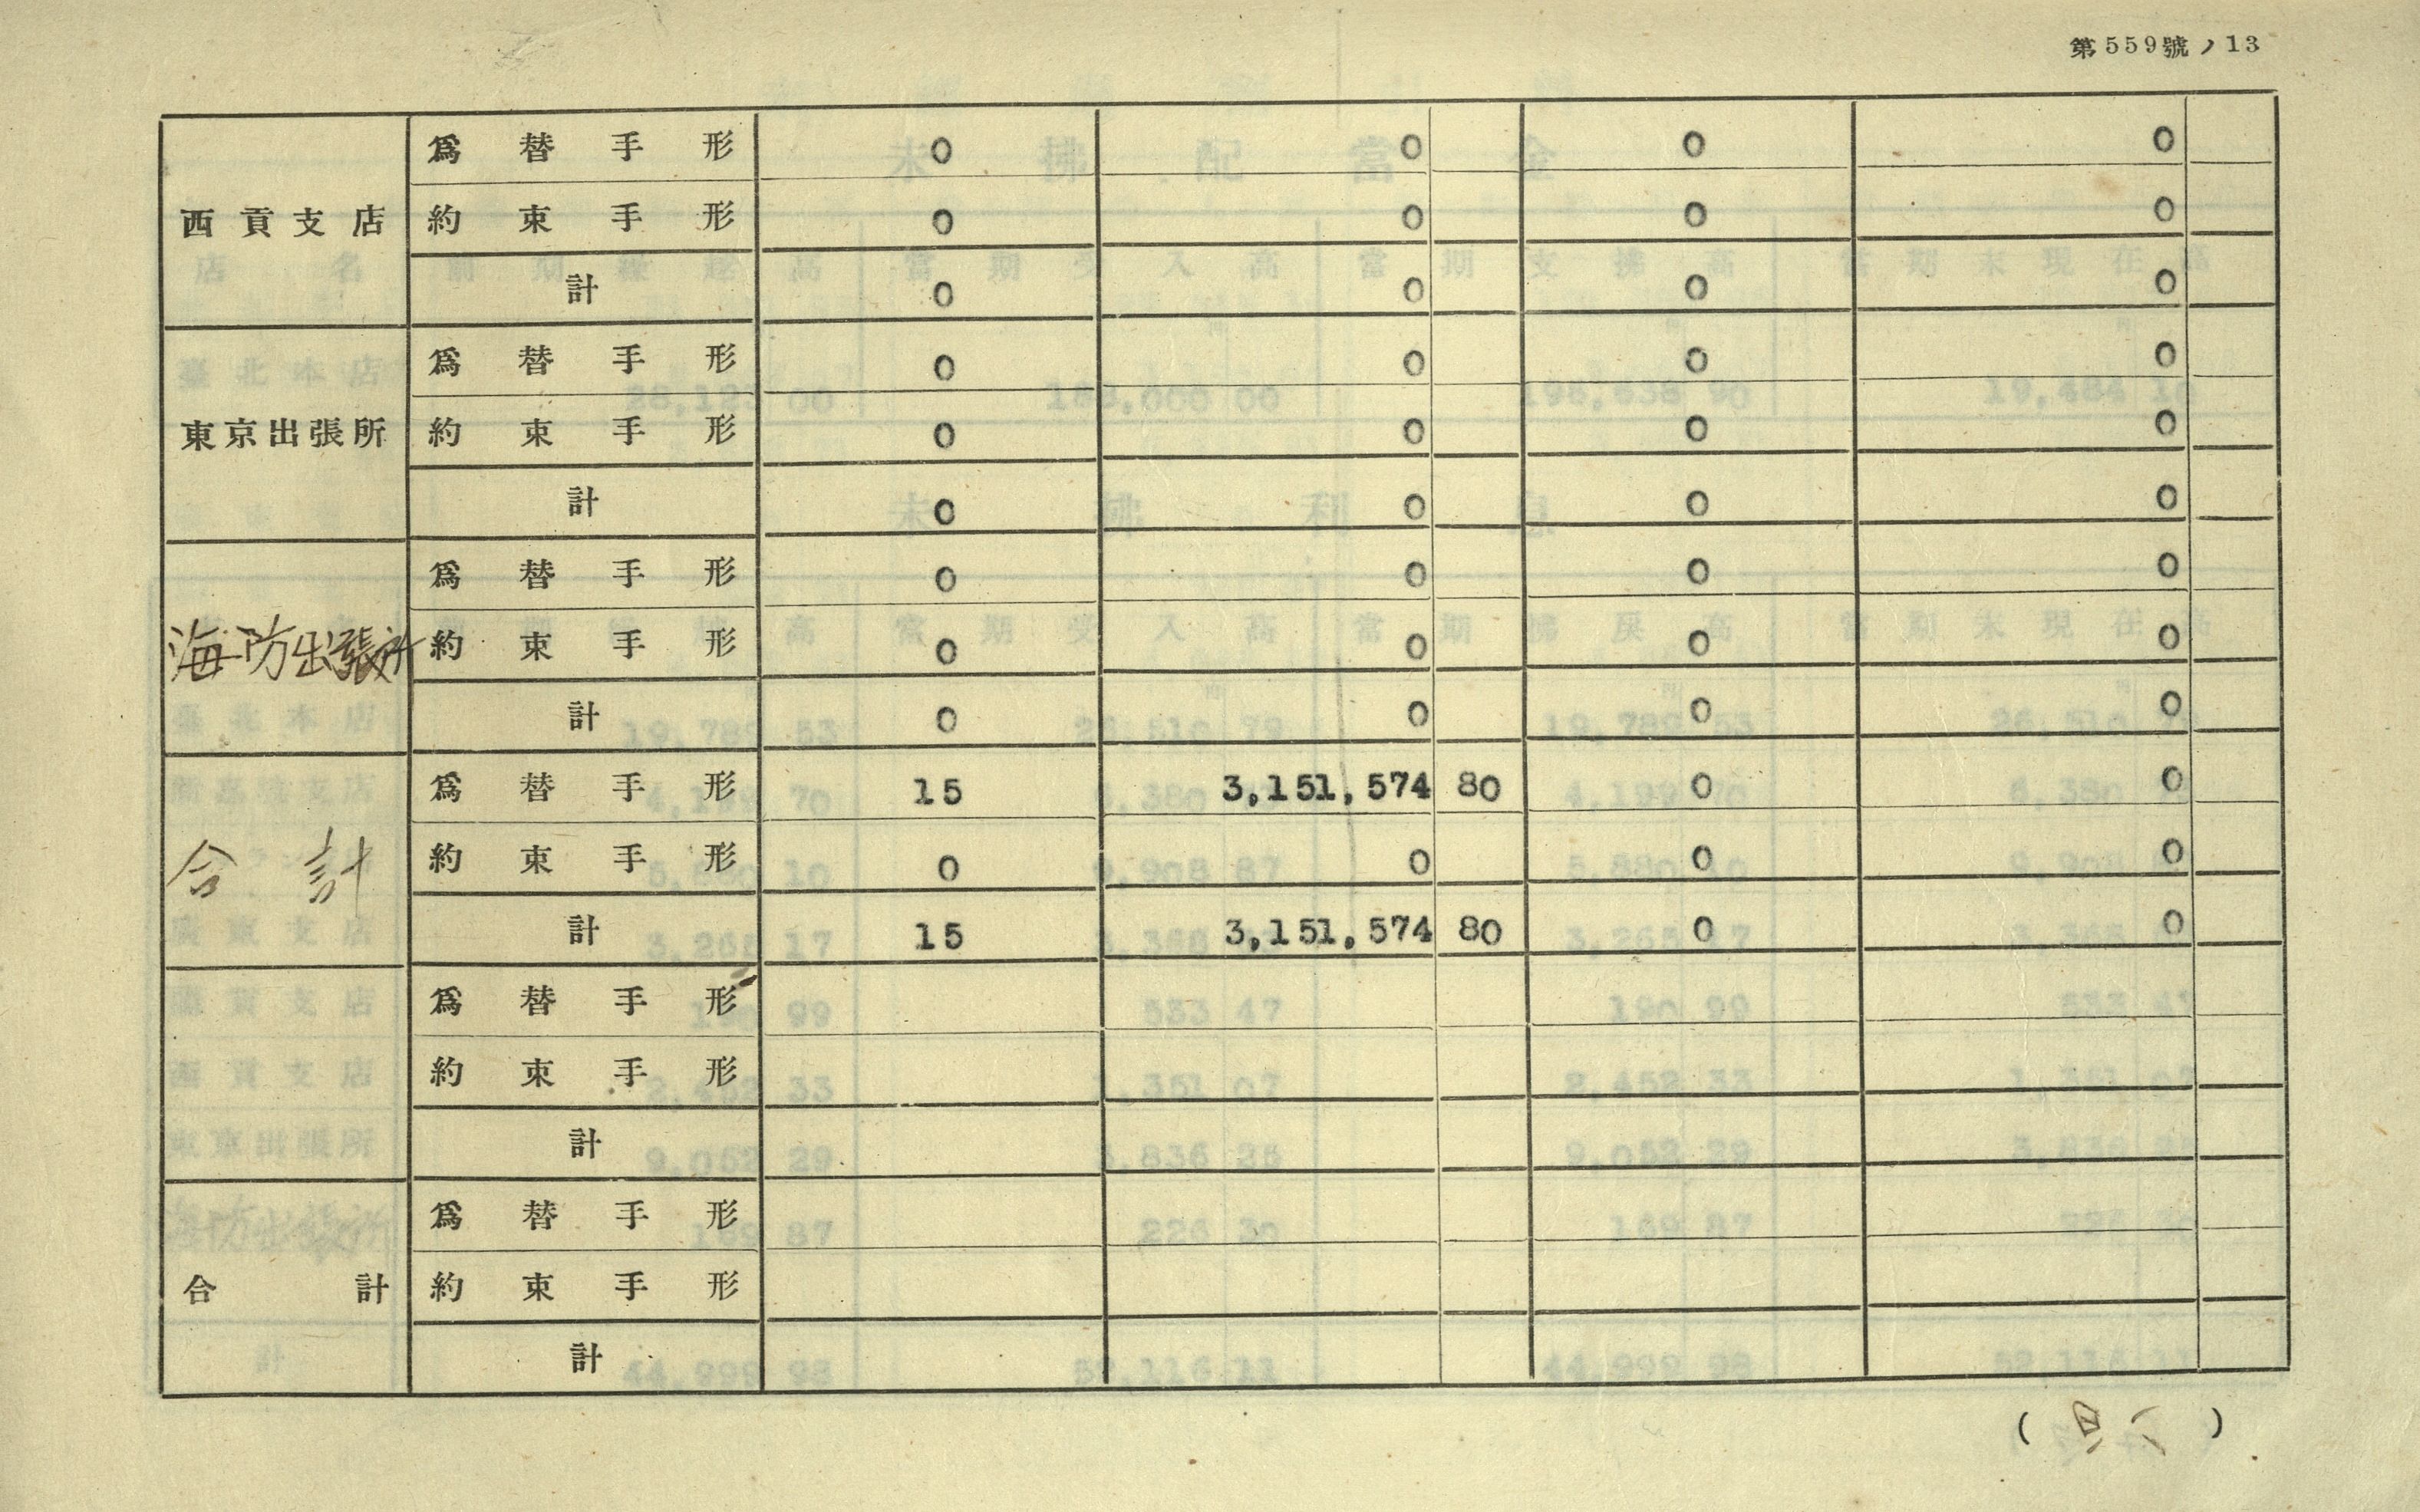 第559號ノ13
西貢支店 爲替手形 0 0 0 0
約束手形 0 0 0 0
計 0 0 0 0
東京出張所 爲替手形 0 0 0 0
約束手形 0 0 0 0
計 0 0 0 0
海防出張所 爲替手形 0 0 0 0
約束手形 0 0 0 0
計 0 0 0 0
合計 爲替手形 15 3,151,574 80 0 0
約束手形 0 0 0 0
計 15 3,151,574 80 0 0
爲替手形
約束手形
計
合計 爲替手形
約束手形
計